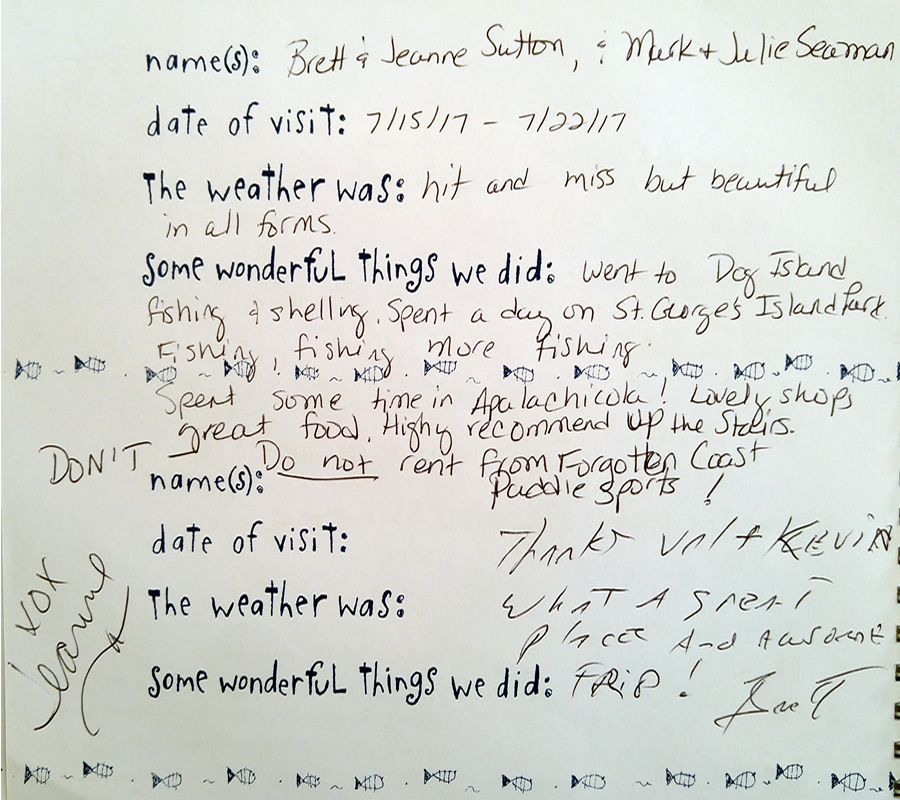 name(s): Brett & Jeanne Sutton, & Mark + Julie Seaman
date of visit: 7/15/17 - 7/22/17
The weather was: hit and miss but beautiful
in all forms.
some wonderful things we did: went to Dog Island
fishing & shelling. Spent a day on St. George's Island Park.
Fishing, fishing more fishing.
Spent some time in Apalachicola! Lovely shops
great food. Highy recommend Up the Stairs.
DON'T Do not rent from Forgotten Coast
name(s): Paddle Sports!
date of visit: Thanks Val + KEVIN
The weather was: WHAT A GREAT
place And Awesome
some wonderful things we did: TRIP!
Brett
XOX
Jeanne